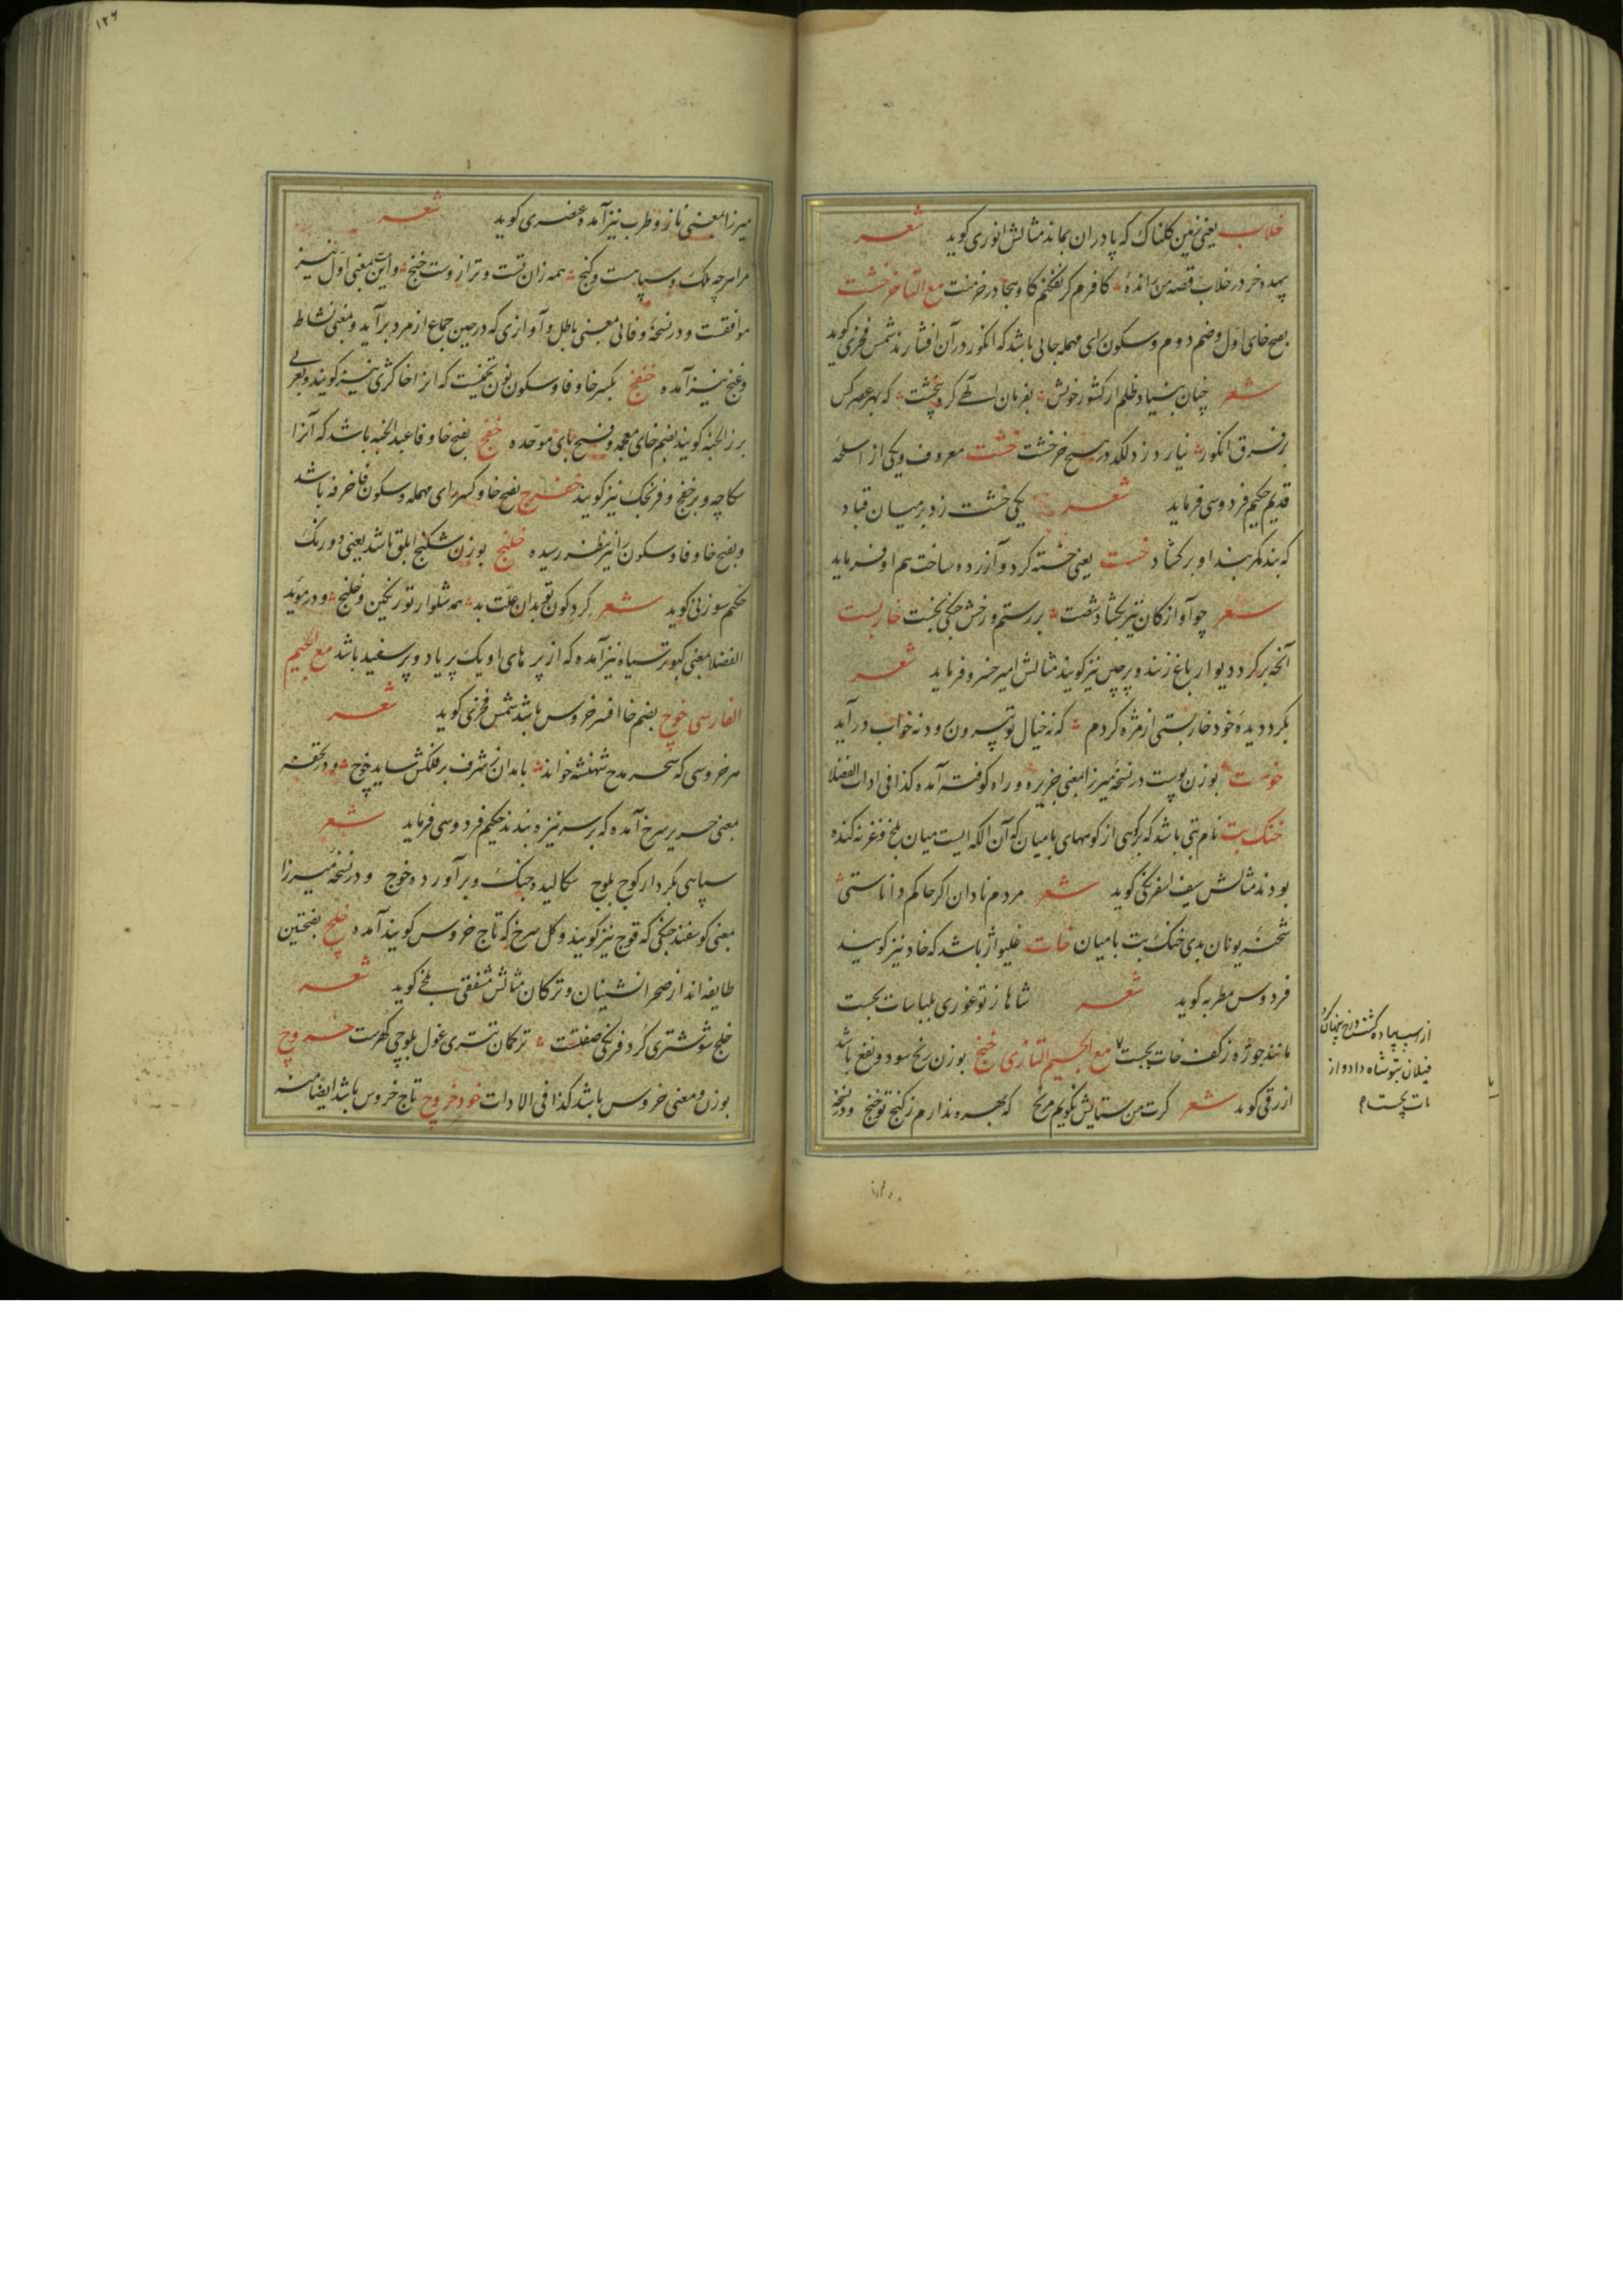 خلاب یعنی زمین گلناک که پا در ان بماند مثالش انوری گوید شعر
خر در خلاب قصه من رانده کافرم گر نفکنم کاو بجا در خرمنت مع التا خرخشت
بفتح خای اول و ضم دوم و سکون رای مهمله جایی باشد که انگور در آن افشارند شمس فخری گوید
شعر چنان بنیاد ظلم از کشور خویش بفرمان الهی کرد که بهر عصر کس
بر فرق انگور نیارد زد لکد در هیچ خرخشت خشت معروف و یکی از اسلحهٔ
قدیم حکیم فردوسی فرماید شعر یکی خشت زد بر میان قباد
که بند کمربند او برکشاد خست یعنی خسته کرد و آزرده ساخت هم او فرماید
شعر چو آواز کان تیر بکشاد شست بر رستم و رخش جنگی بخست خاربست
آنچه بر کرد دیوار باغ زنند و پرچین نیز کویند مثالش امیر خسرو فرماید شعر
بکرد دیدهٔ خود خاربستی از مژه کردم که نه خیال تو بیرون رود نه خواب درآید
خوست بوزن پوست در نسخهٔ میرزا بمعنی جزیره و راه کوفته آمده کذا فی ادات الفضلا
خنک بت نام بتی باشد که بر کوهی از کوههای بامیان که آن الکه ایست میان بلخ و غزنه کنده
بودند مثالش سیف اسفرنگی گوید شعر مردم نادان اگر حاکم داناستی
شحنهٔ یونان بدی خنک بت بامیان خات غلیواژ باشد که خاد نیز کویند
فردوس مطربه گوید شعر شاها ز تو غوری بلباسات بجست
مانند جوژه از کف خات بجست مع الجیم التازی خنج بوزن رنج سود و نفع باشد
ازرقی گوید شعر کرت من ستایش نکویم مرنج که بهره ندارم ز کنج تو خنج و در نسخهٔ
از اسب پیاده گشت و رخ پنهان کرد
فیلان بتو شاه داد و از
مات بجست
۱۲۶
میرزا بمعنی ناز و طرب نیز آمده عنصری گوید شعر
مرا هر چه ملک و سپاهست و گنج همه زان تست و ترا زوست خنج و این بمعنی اول نیز
موافقست و در نسخهٔ وفائی بمعنی باطل و آوازی که در حین جماع از مرد برآید و بمعنی نشاط
و غنج نیز آمده خفنج بکسر خا و فا و سکون نون تخمیست که انرا خاکشی نیز کویند و بعربی
بزر الخبه کویند بضم خای معجمه و فتح بای موحده خفج بفتح خا و فا عبد الجنه باشد که آنرا
سکاچه و برخفج و فرنجک نیز کویند خفرج بفتح خا و کسر رای مهمله و سکون فا خرفه باشد
و بفتح خا و فا و سکون را نیز بنظر رسیده خلنج بوزن شکنج ابلق باشد یعنی دو رنک
حکیم سوزنی گوید شعر کرد کون تو بدان علت بد همه شلوار تو رنگین و خلنج و در موید
الفضلا بمعنی کبوتر سیاه نیز آمده که از پرهای او یک پر یا دو پر سفید باشد مع الجیم
الفارسی خوچ بضم خا افسر خروس باشد شمس فخری گوید شعر
هر خروسی که سحر مدح شهنشه خواند بامدادان ز شرف بر فلکش شاید خوچ و در تحفه
بمعنی حریر سرخ آمده که بر سر نیزه بندند حکیم فردوسی فرماید شعر
سپاهی بکردار کوچ و بلوچ سکالیده جنگ و برآورده خوچ و در نسخهٔ میرزا
بمعنی کوسفند جنگی که قوچ نیز کویند و گل سرخ که تاج خروس کویند آمده خلج بفتحتین
طایفه اند از صحرا نشینان و ترکان مثالش مشفقی بلخی کوید شعر
خلج شوشتری کرد فرنگی صفتست ترکمان تستری غول بلوچی گهرست خروچ
بوزن و معنی خروس باشد کذا فی الادات خود خروچ تاج خروس باشد ایضا منه